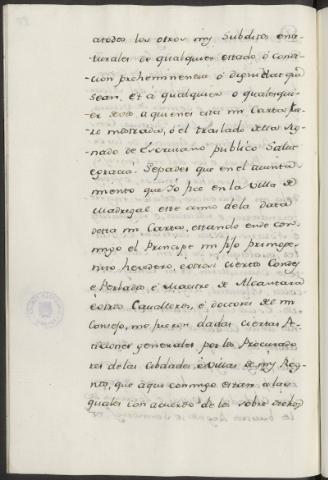 atodos los otros mis Subditos é na-
turales de qualquier estado, ó condi-
cion prehemmencia ó dignidad que
sean, et á qualquier o qualesqui-
er dellos a quienes esta mi Carta fue-
re mostrada, ó el traslado della sig-
nado de Escrivano publico Salut
egracia. Sepades que en el aiunta-
miento que Io fice en la Villa de
Madrigal este anno de la data
desta mi Carta, estando ende con-
migo el Principe mi fijo primoge-
nito heredero, é otros ciertos Condes
é Perlados, é Maestre de Alcantara
é otros Cavalleros, é doctores de mi
Consejo, me fueron dadas ciertas Pe-
ticiones generales por los Procurado-
res de las Cibdades, é Villas de mis Reg-
nos, que aqui conmigo estan, a las
quales con acuerdo de los sobre dichos